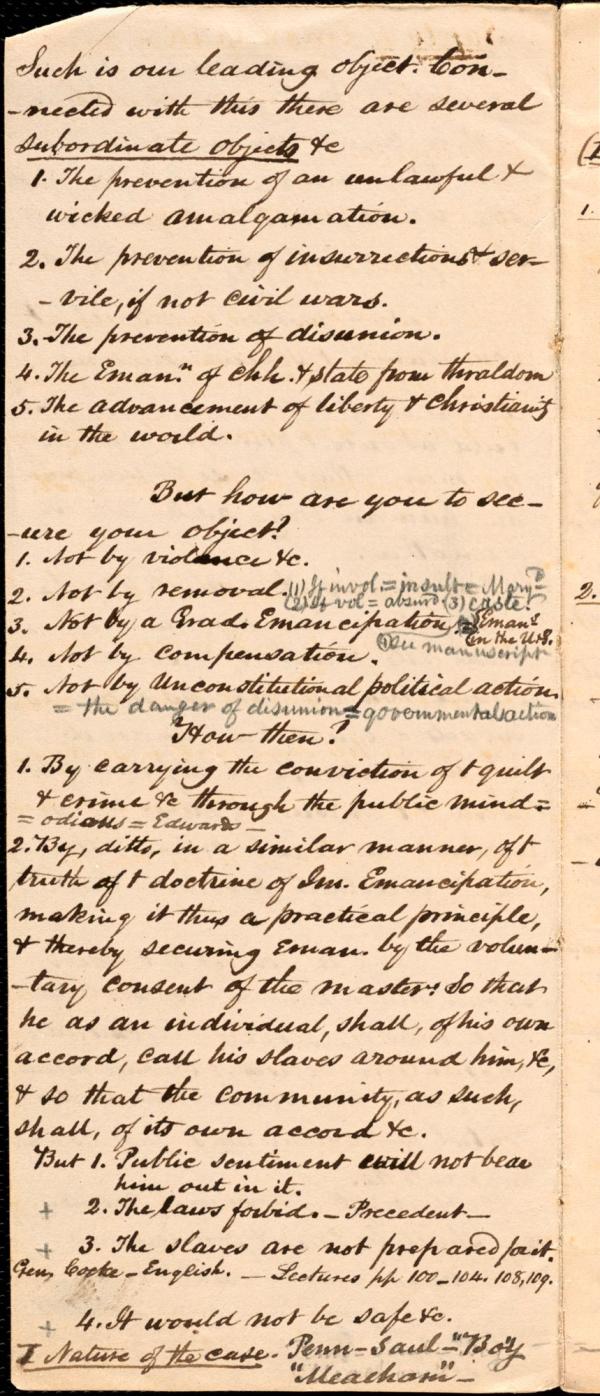 Such is our leading object. Con-
-nected with this there are several
subordinate objects &c
1. The prevention of an unlawful &
wicked amalgamation.
2. The prevention of insurrections & ser-
-vile, if not civil wars.
3. The prevention of disunion.
4. The Eman.n of chh. & state from thraldom
5. The advancement of liberty & Christianity
in the world.
But how are you to sec-
-ure your object?
1. Not by violence &c.
2. Not by removal. (1) If invol = insult = Mary.d
(2) If vol = absurd (3) caste.
3. Not by a Grad. Emancipation = Eman.s
in the U.S.
4. Not by compensation. manuscript
5. Not by Unconstitutional political action.
= the danger of disunion = governmental action
How then?
1. By carrying the conviction of t guilt
& crime &c through the public mind =
= odious = Edwards -
2. By, ditto, in a similar manner, of t
truth of t doctrine of Im. Emancipation,
making it thus a practical principle,
& thereby securing Eman. by the volun-
-tary consent of the master. So that
he as an individual, shall, of his own
accord, call his slaves around him, &c,
& so that the community, as such,
shall, of its own accord &c.
But 1. Public sentiment will not bear
him out in it.
+ 2. The laws forbid. - Precedent -
+ 3. The slaves are not prepared for it.
Gen. Cocke - English. - Lectures pp 100-104. 108, 109.
+ 4. It would not be safe &c.
I Nature of the case. Penn - Saul - "Boy
"Meacham" -
(1
1.
2.